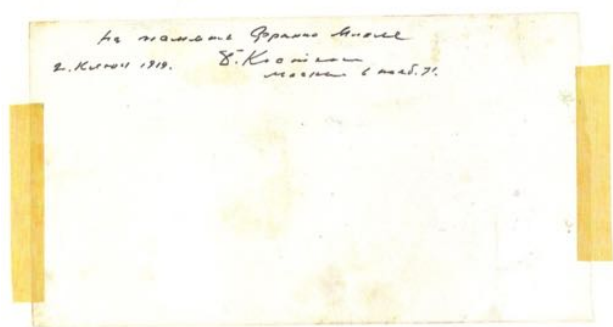 На память Франко Миеле
И. Клюн 1919. Г. Костаки
Москва 6 нояб. 71.